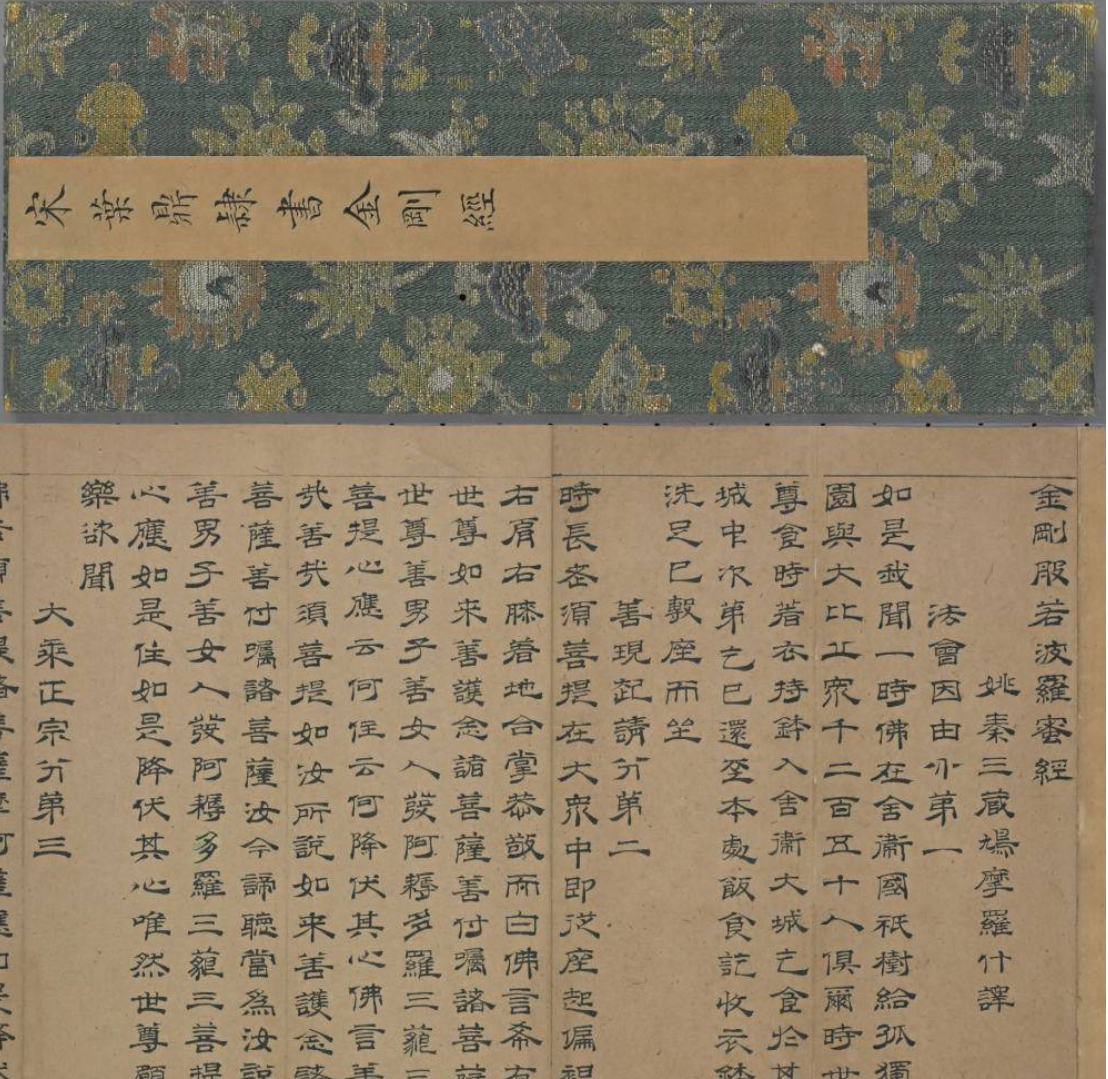 宋葉鼎隸書金剛經
金剛般若波羅蜜經
姚秦三藏鳩摩羅什譯
法會因由分第一
如是我聞一時佛在舍衞國祇樹給孤獨
園與大比丘衆千二百五十人俱爾時世
尊食時着衣持鉢入舍衞大城乞食於其
城中次第乞已還至本處飯食訖收衣鉢
洗足已敷座而坐
善現起請分第二
時長老須菩提在大衆中即從座起偏袒
右肩右膝着地合掌恭敬而白佛言希有
世尊如来善護念諸菩薩善付囑諸菩薩
世尊善男子善女人發阿耨多羅三藐三
菩提心應云何住云何降伏其心佛言善
哉善哉須菩提如汝所說如来善護念諸
菩薩善付囑諸菩薩汝今諦聽當爲汝說
善男子善女人發阿耨多羅三藐三菩提
心應如是住如是降伏其心唯然世尊願
樂欲聞
大乘正宗分第三